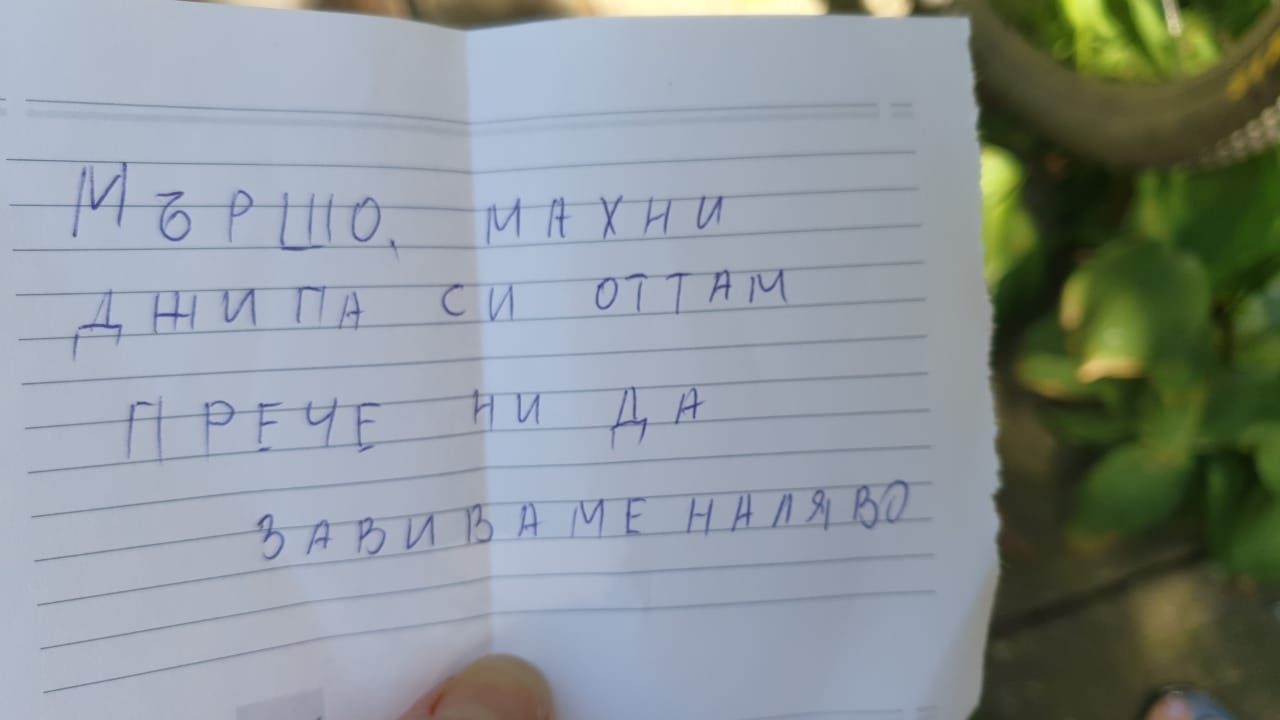 МЪРШО, МАХНИ
ДЖИПА СИ ОТТАМ
ПРЕЧЕ НИ ДА
ЗАВИВАМЕ НАЛЯВО